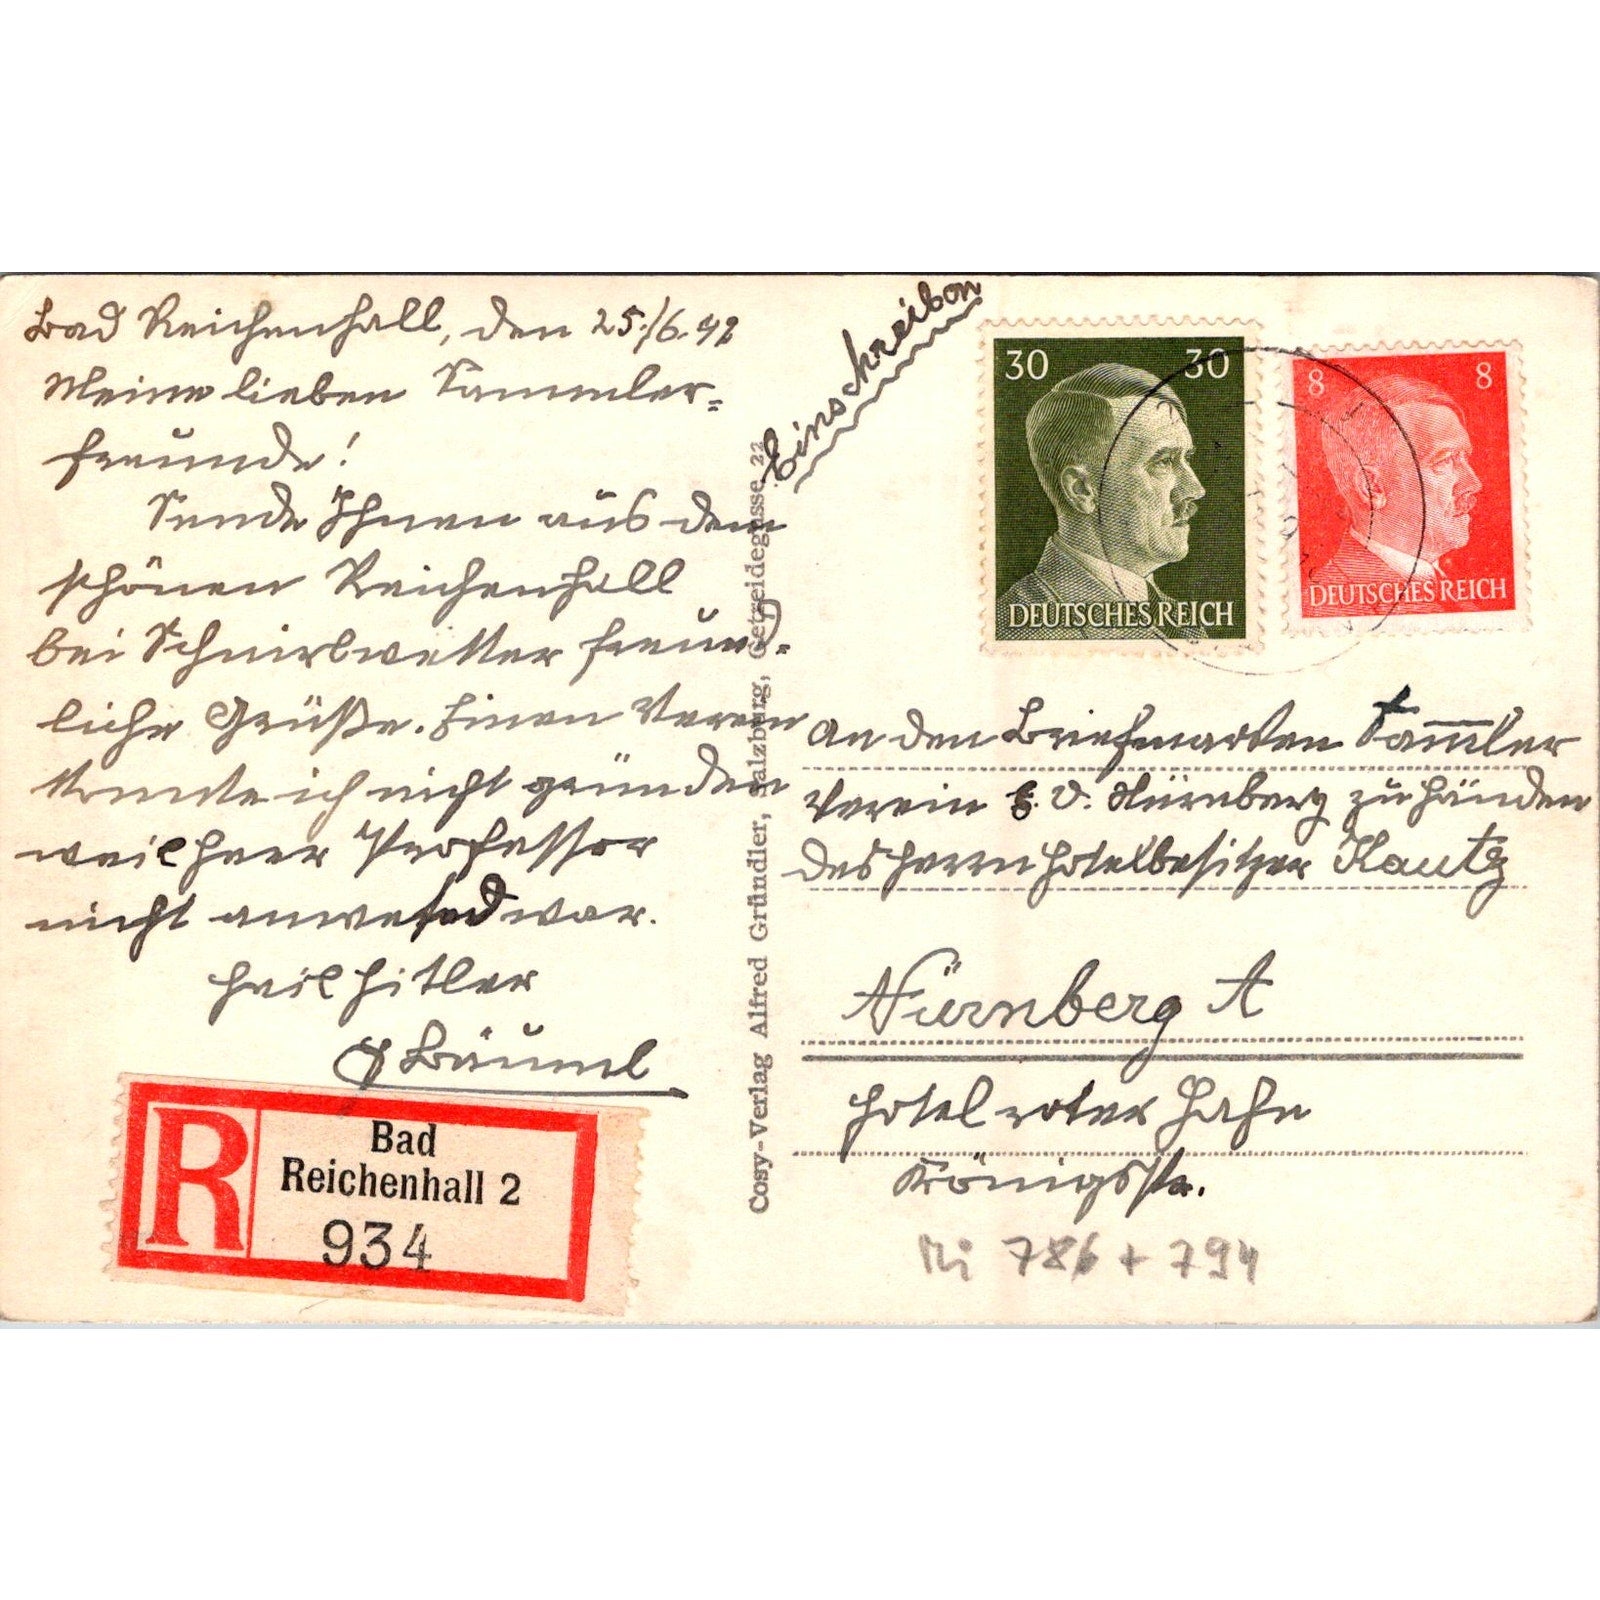 Bad Reichenhall, den 25./6. 42
Meine lieben Sammler=
freunde!
Sende Ihnen aus dem
schönen Reichenhall
bei Schnürlwetter freund=
liche Grüße. Einen Verein
konnte ich nicht gründen
weil Herr Professor
nicht anwesend war.
Heil Hitler
Bäuml
R
Bad
Reichenhall 2
934
Cosy-Verlag Alfred Gründler, Salzburg, Getreidegasse 22
Einschreiben
30 30
DEUTSCHES REICH
8 8
DEUTSCHES REICH
An den Briefmarken Sammler
Verein E. V. Nürnberg zu Händen
des Herrn Hotelbesitzer Kautz
Nürnberg A
Hotel roter Hahn
Königsstr.
Mi 786 + 794